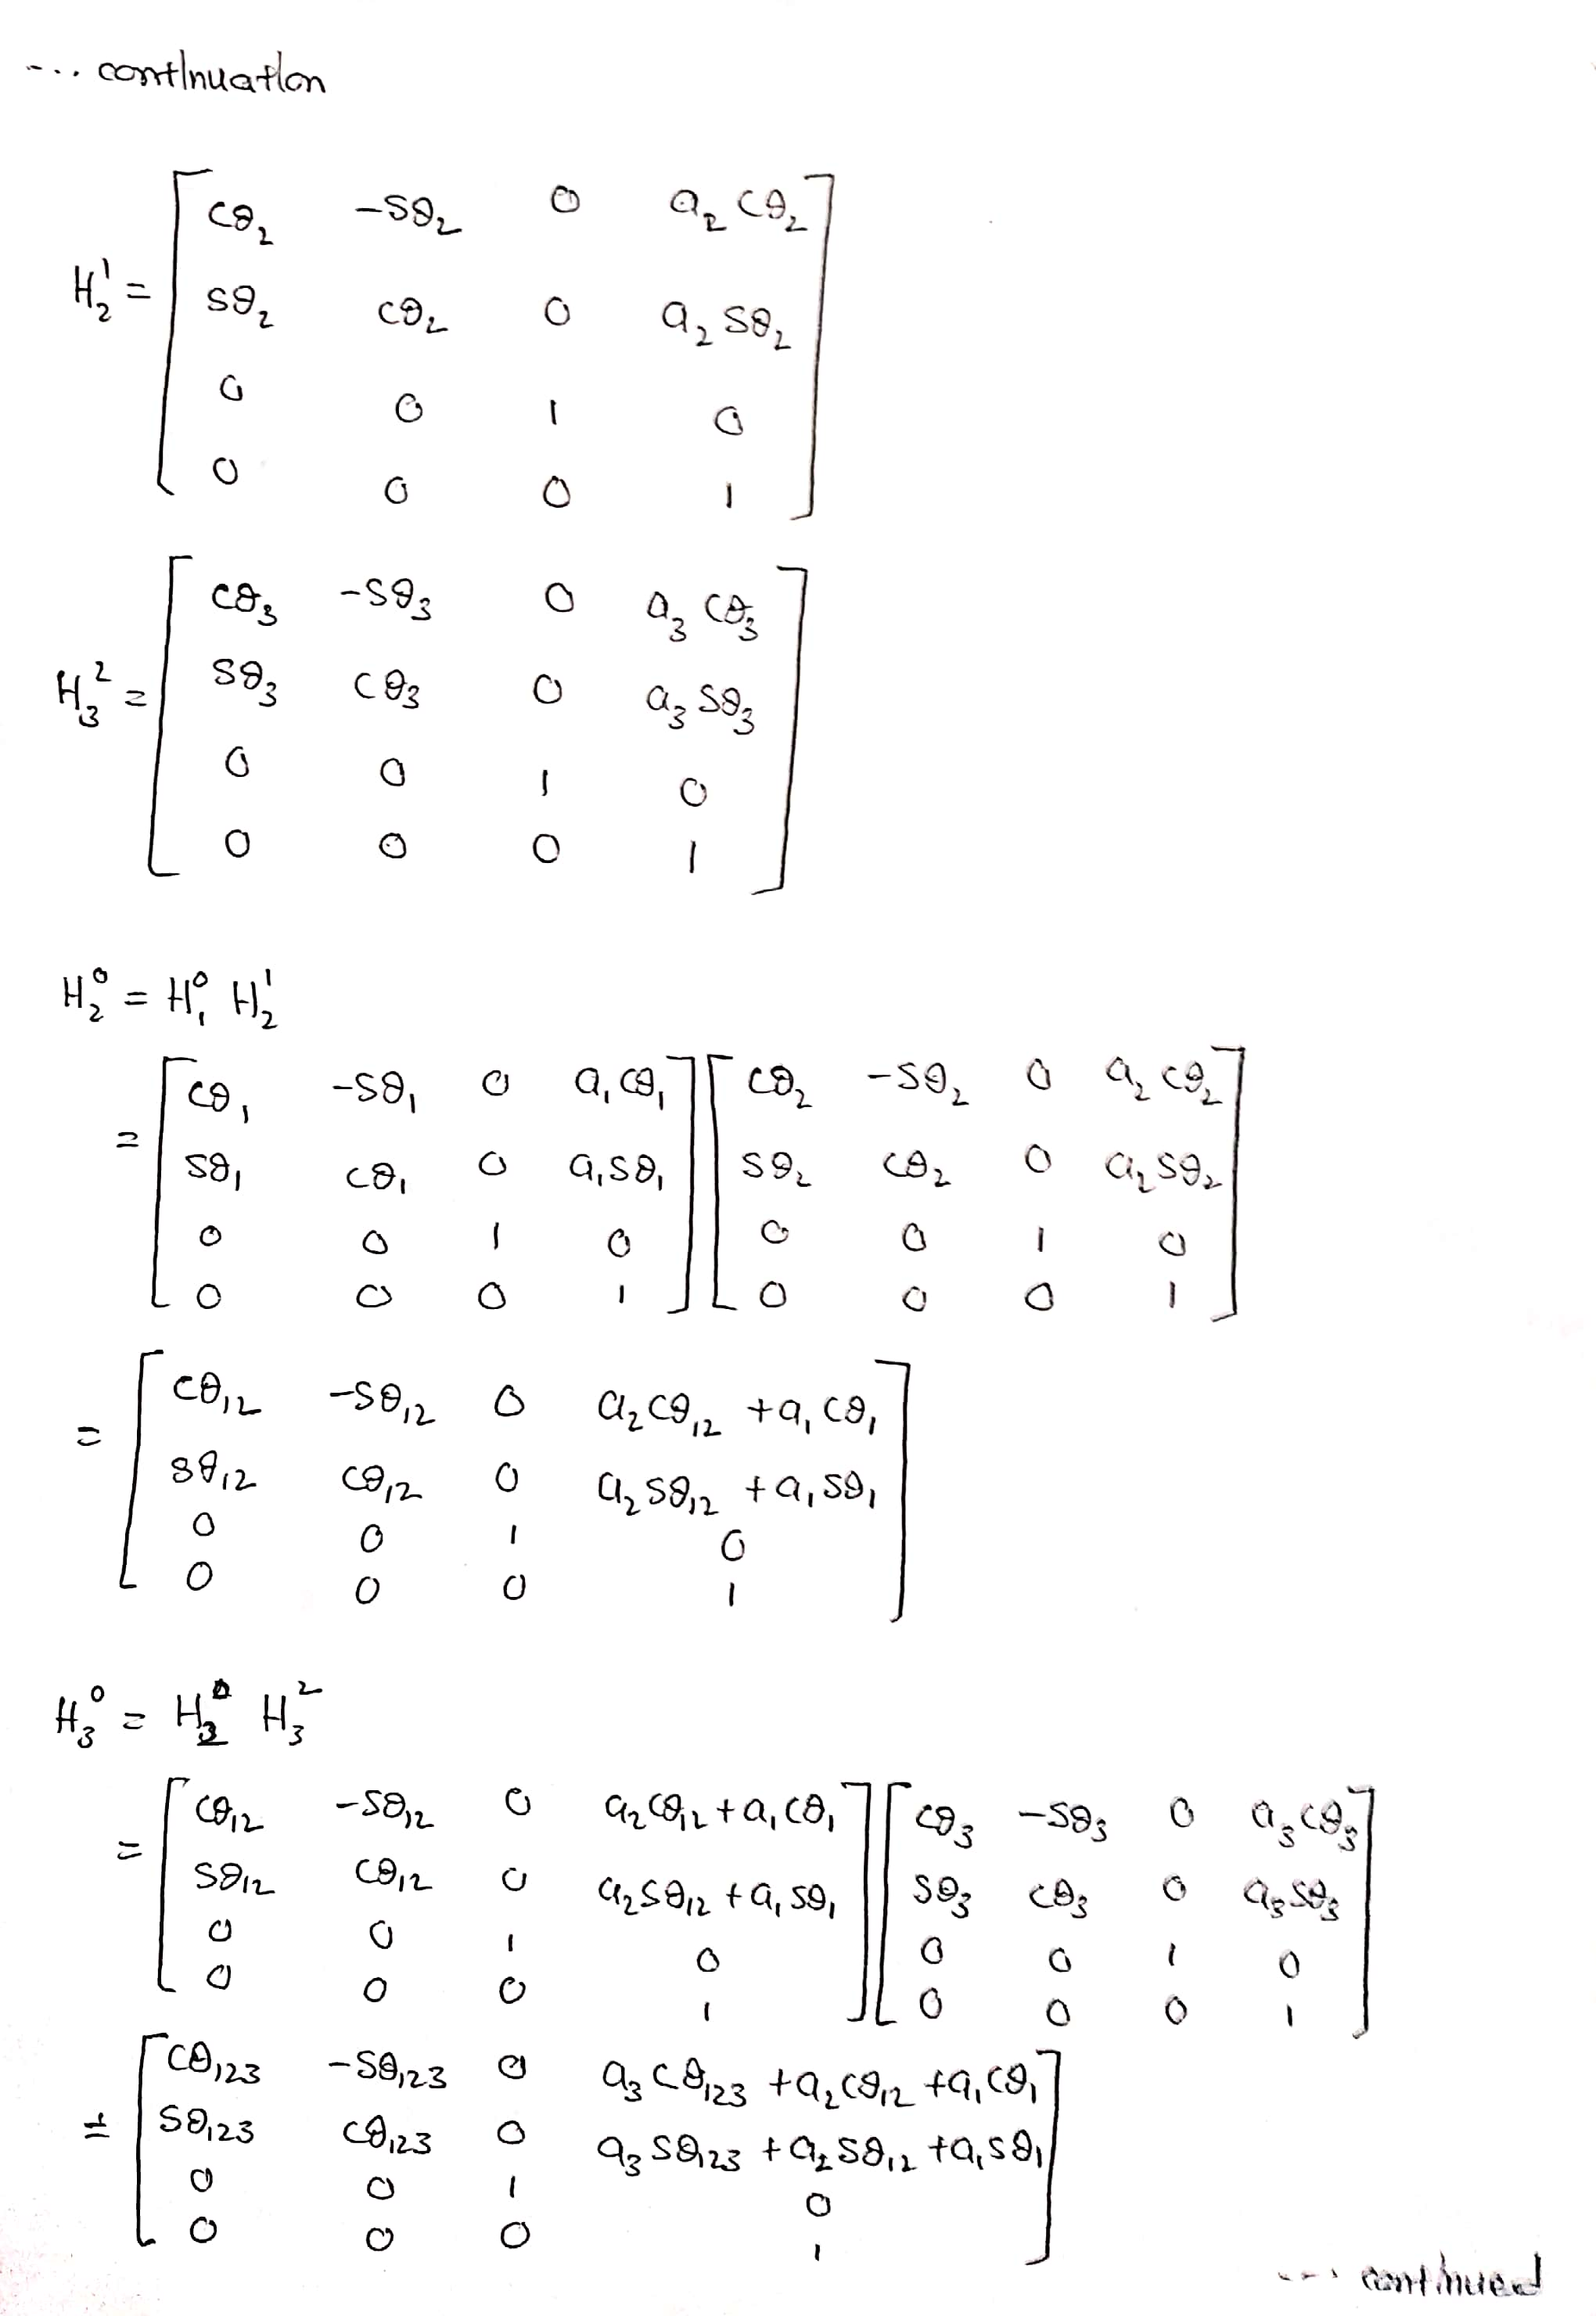 ... continuation
H₂¹ = [ cθ₂ -sθ₂ 0 a₂ cθ₂
sθ₂ cθ₂ 0 a₂ sθ₂
0 0 1 0
0 0 0 1 ]
H₃² = [ cθ₃ -sθ₃ 0 a₃ cθ₃
sθ₃ cθ₃ 0 a₃ sθ₃
0 0 1 0
0 0 0 1 ]
H₂⁰ = H₁⁰ H₂¹
= [ cθ₁ -sθ₁ 0 a₁cθ₁ ] [ cθ₂ -sθ₂ 0 a₂ cθ₂ ]
sθ₁ cθ₁ 0 a₁sθ₁ sθ₂ cθ₂ 0 a₂sθ₂
0 0 1 0 0 0 1 0
0 0 0 1 0 0 0 1
= [ cθ₁₂ -sθ₁₂ 0 a₂cθ₁₂ + a₁cθ₁
sθ₁₂ cθ₁₂ 0 a₂sθ₁₂ + a₁sθ₁
0 0 1 0
0 0 0 1 ]
H₃⁰ = H₂⁰ H₃²
= [ cθ₁₂ -sθ₁₂ 0 a₂cθ₁₂ + a₁cθ₁ ] [ cθ₃ -sθ₃ 0 a₃cθ₃ ]
sθ₁₂ cθ₁₂ 0 a₂sθ₁₂ + a₁sθ₁ sθ₃ cθ₃ 0 a₃sθ₃
0 0 1 0 0 0 1 0
0 0 0 1 0 0 0 1
= [ cθ₁₂₃ -sθ₁₂₃ 0 a₃cθ₁₂₃ + a₂cθ₁₂ + a₁cθ₁
sθ₁₂₃ cθ₁₂₃ 0 a₃sθ₁₂₃ + a₂sθ₁₂ + a₁sθ₁
0 0 1 0
0 0 0 1 ]
... continued